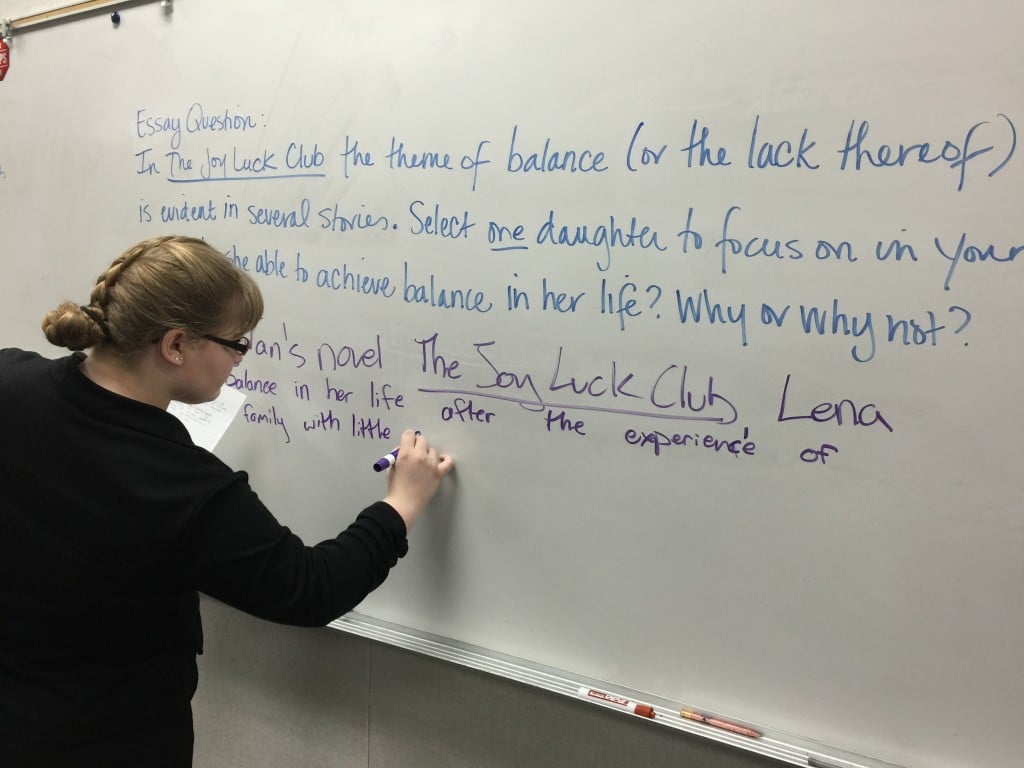 Essay Question:
In The Joy Luck Club the theme of balance (or the lack thereof)
is evident in several stories. Select one daughter to focus on in your
she able to achieve balance in her life? Why or why not?
Tan's novel The Joy Luck Club, Lena
balance in her life after the experience of
family with little